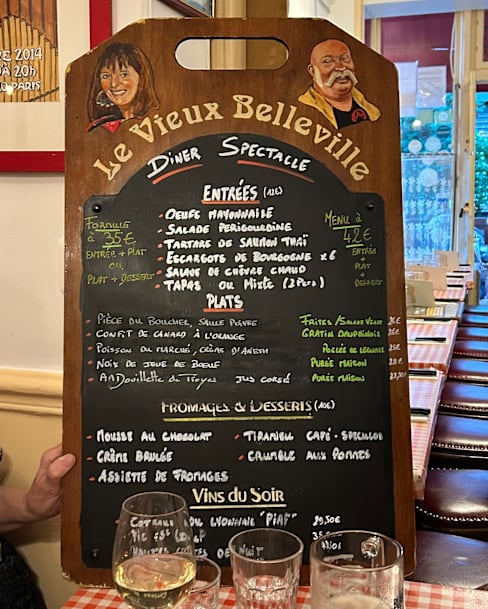 RE 2014
À 20h
PARIS
Le Vieux Belleville
Dîner Spectacle
ENTRÉES (12€)
- OEUFS MAYONNAISE
- SALADE PÉRIGOURDINE
- TARTARE DE SAUMON THAÏ
- ESCARGOTS DE BOURGOGNE x6
- SALADE DE CHÈVRE CHAUD
- TAPAS OU MIXTE (2 PERS)
FORMULE
à 35€
ENTRÉE + PLAT
OU
PLAT + DESSERT
MENU à
42€
ENTRÉE
+
PLAT
+
DESSERT
PLATS
- PIÈCE DU BOUCHER, SAUCE POIVRE FRITES/SALADE VERTE
- CONFIT DE CANARD À L'ORANGE GRATIN DAUPHINOIS
- POISSON DU MARCHÉ, CRÈME D'ANETH POÊLÉE DE LÉGUMES
- NOIX DE JOUE DE BOEUF PURÉE MAISON
- Andouillette de Troyes JUS CORSÉ PURÉE MAISON
FROMAGES & DESSERTS (10€)
- MOUSSE AU CHOCOLAT - TIRAMISU CAFÉ-SPECULOOS
- CRÈME BRULÉE - CRUMBLE AUX POMMES
- ASSIETTE DE FROMAGES
VINS DU SOIR
- COTEAUX DU LYONNAIS "PIAF" 29,50€
PIC ST LOUP
DE NUIT